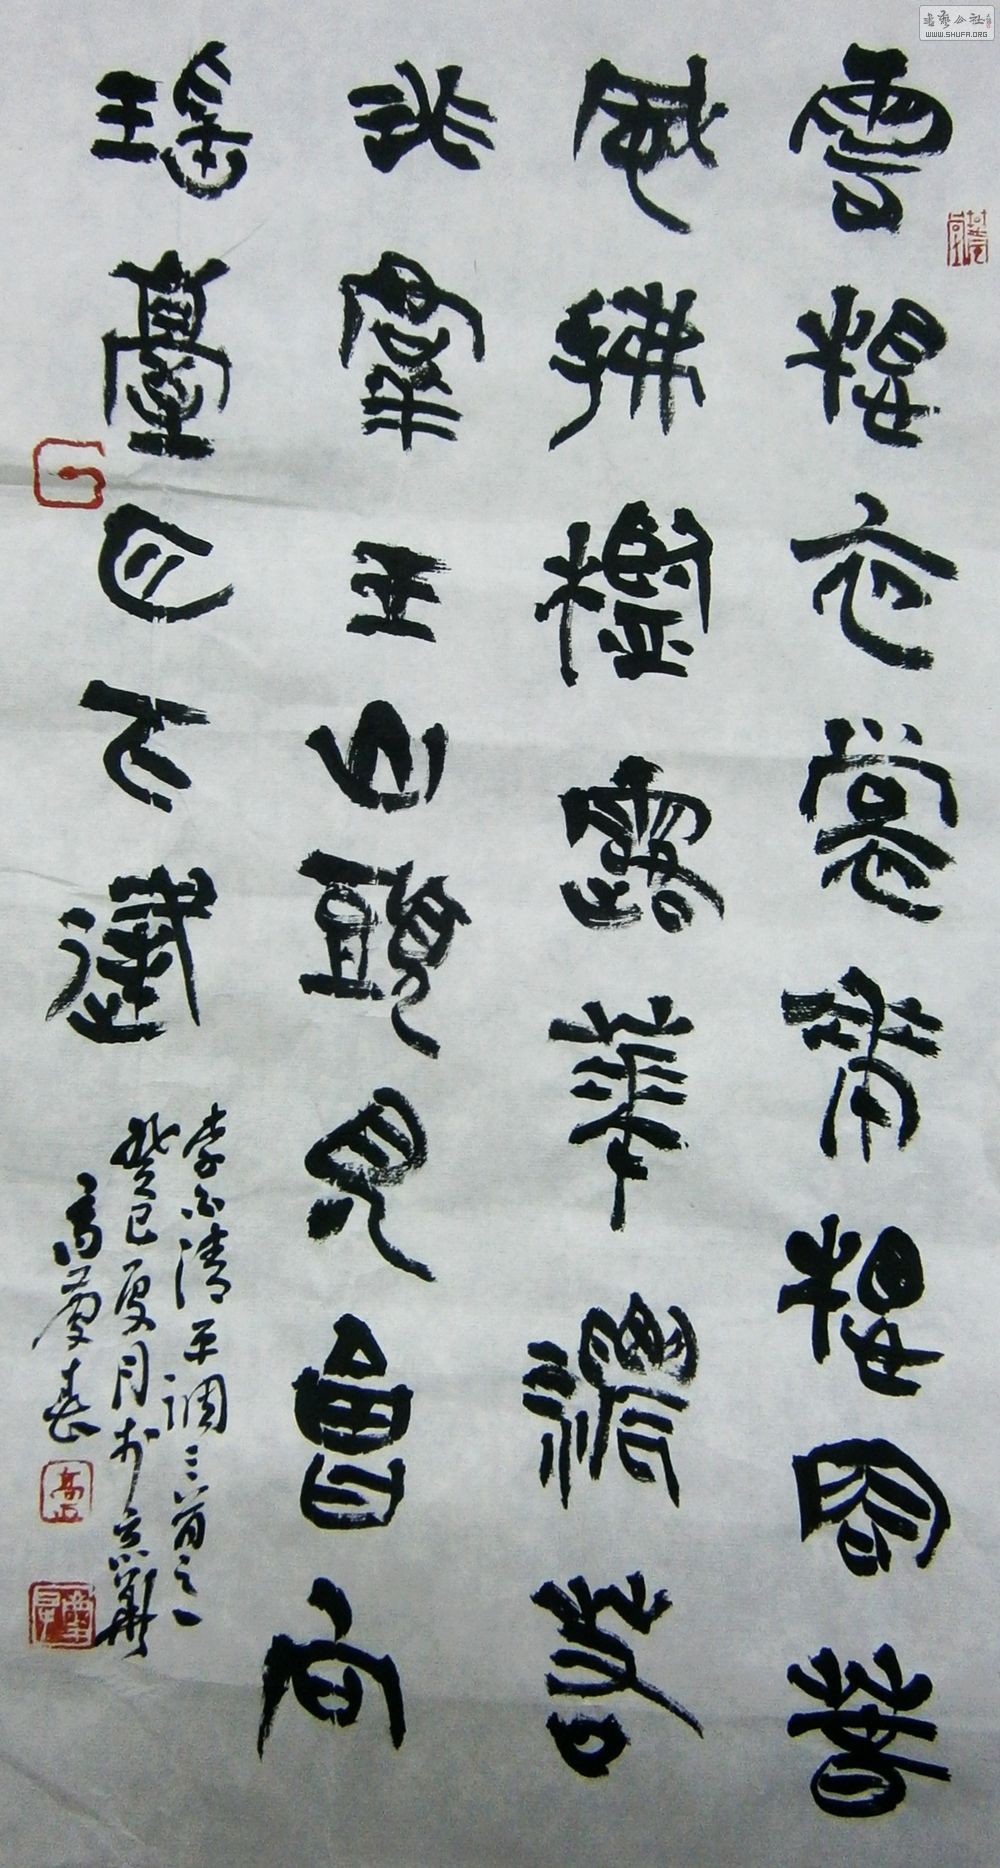 雲想衣裳花想容春
風拂檻露華濃若
非群玉山頭見會向
瑤臺月下逢
李白清平調三首之一
癸巳夏月於京華
高慶春
书艺公社
WWW.SHUFA.ORG